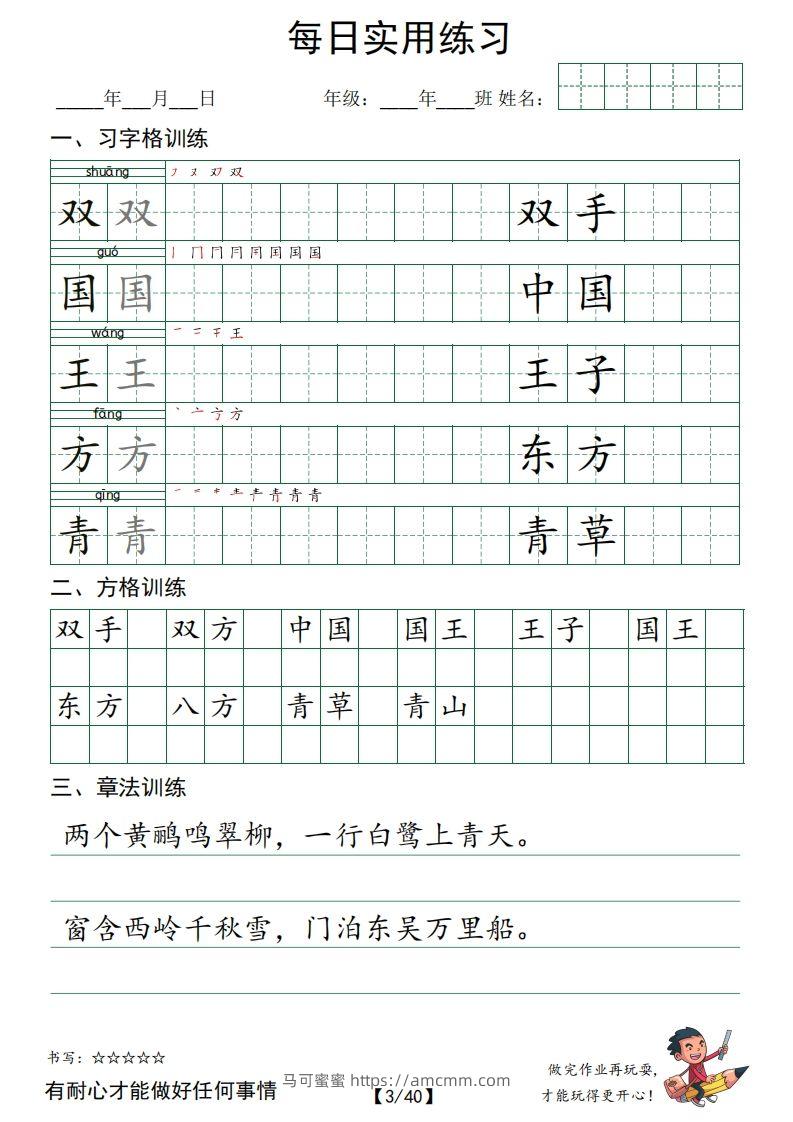 每日实用练习
_____年___月___日 年级：____年____班 姓名：
一、习字格训练
shuāng
双 双 双 手
guó
国 国 中 国
wáng
王 王 王 子
fāng
方 方 东 方
qīng
青 青 青 草
二、方格训练
双手 双方 中国 国王 王子 国王
东方 八方 青草 青山
三、章法训练
两个黄鹂鸣翠柳，一行白鹭上青天。
窗含西岭千秋雪，门泊东吴万里船。
书写：☆☆☆☆☆
做完作业再玩耍，
才能玩得更开心！
有耐心才能做好任何事情 马可蜜蜜 https://amcmm.com
【3/40】